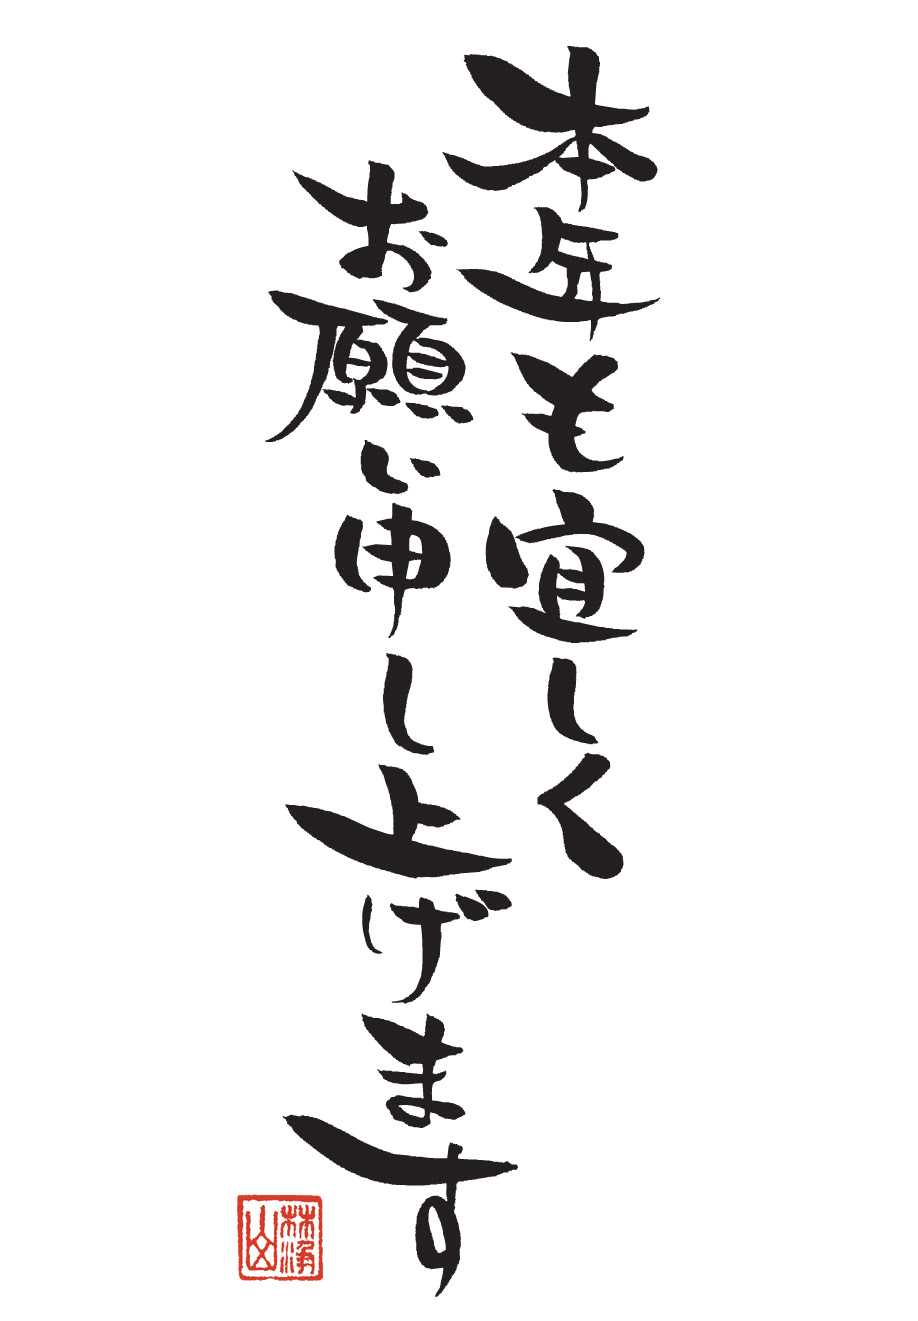 本年も宜しく
お願い申し上げます